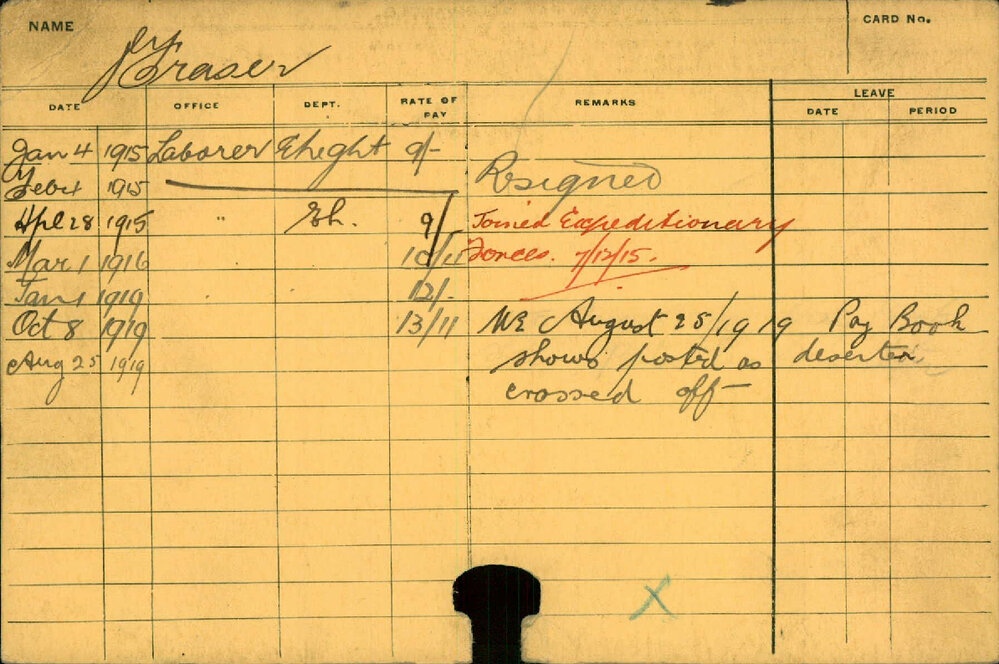 NAME
CARD No.
J Fraser
DATE OFFICE DEPT. RATE OF PAY REMARKS LEAVE
DATE PERIOD
Jan 4 1915 Laborer Eheght 9/-
Feb 4 1915 Resigned
Apl 28 1915 " Eh. 9/ Joined Expeditionary
Mar 1 1916 10/11 Forces. 7/12/15.
Jan 1 1919 12/-
Oct 8 1919 13/11 WE August 25/1919 Pay Book
Aug 25 1919 shows posted as deserter
crossed off
X